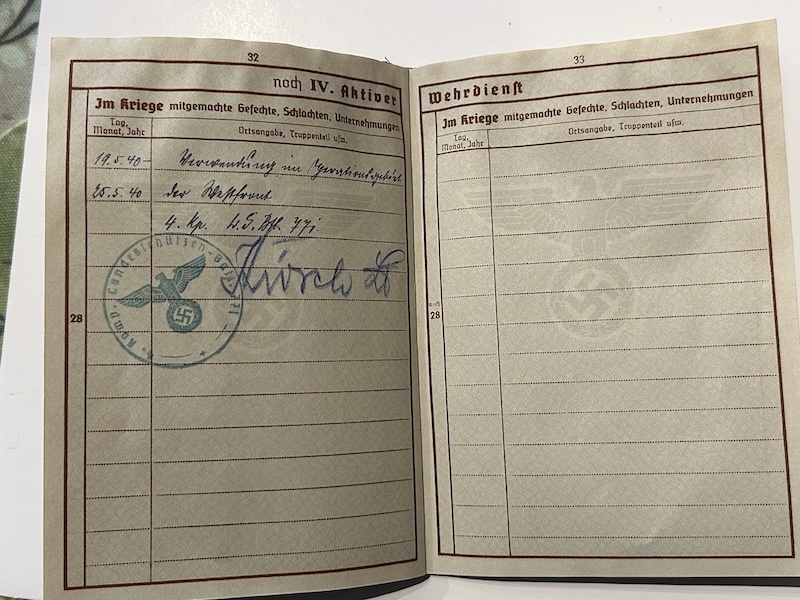 32
noch IV. Aktiver
Im Kriege mitgemachte Gefechte, Schlachten, Unternehmungen
Tag, Monat, Jahr
Ortsangabe, Truppenteil usw.
19.5.40 - Verwendung im Operationsgebiet
25.5.40 der Westfront
4. Kp.
28
4. Komp. Landesschützen-Batl.
33
Wehrdienst
Im Kriege mitgemachte Gefechte, Schlachten, Unternehmungen
Tag, Monat, Jahr
Ortsangabe, Truppenteil usw.
noch
28